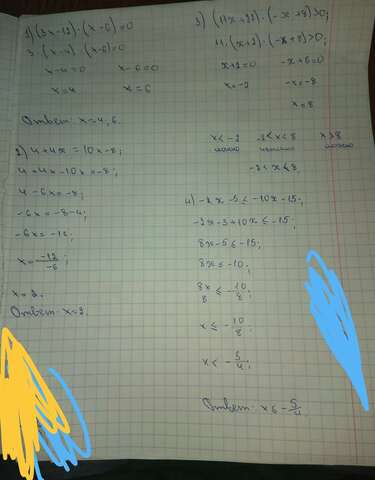 1) (3x-12)·(x-6)=0
3·(x-4)·(x-6)=0
x-4=0 x-6=0
x=4 x=6
Ответ: x=4,6.
2) 4+4x=10x-8;
4+4x-10x=-8;
4-6x=-8;
-6x=-8-4;
-6x=-12;
x=-12/-6;
x=2.
Ответ: x=2.
3) (11x+22)·(-x+8)>0;
11·(x+2)·(-x+8)>0;
x+2=0 -x+8=0
x=-2 -x=-8
x=8
x<-2 -2<x<8 x>8
-2<x<8.
4) -2x-5≤-10x-15;
-2x-5+10x≤-15;
8x-5≤-15;
8x≤-10;
8x/8≤-10/8;
x≤-10/8;
x<-5/4;
Ответ: x≤-5/4